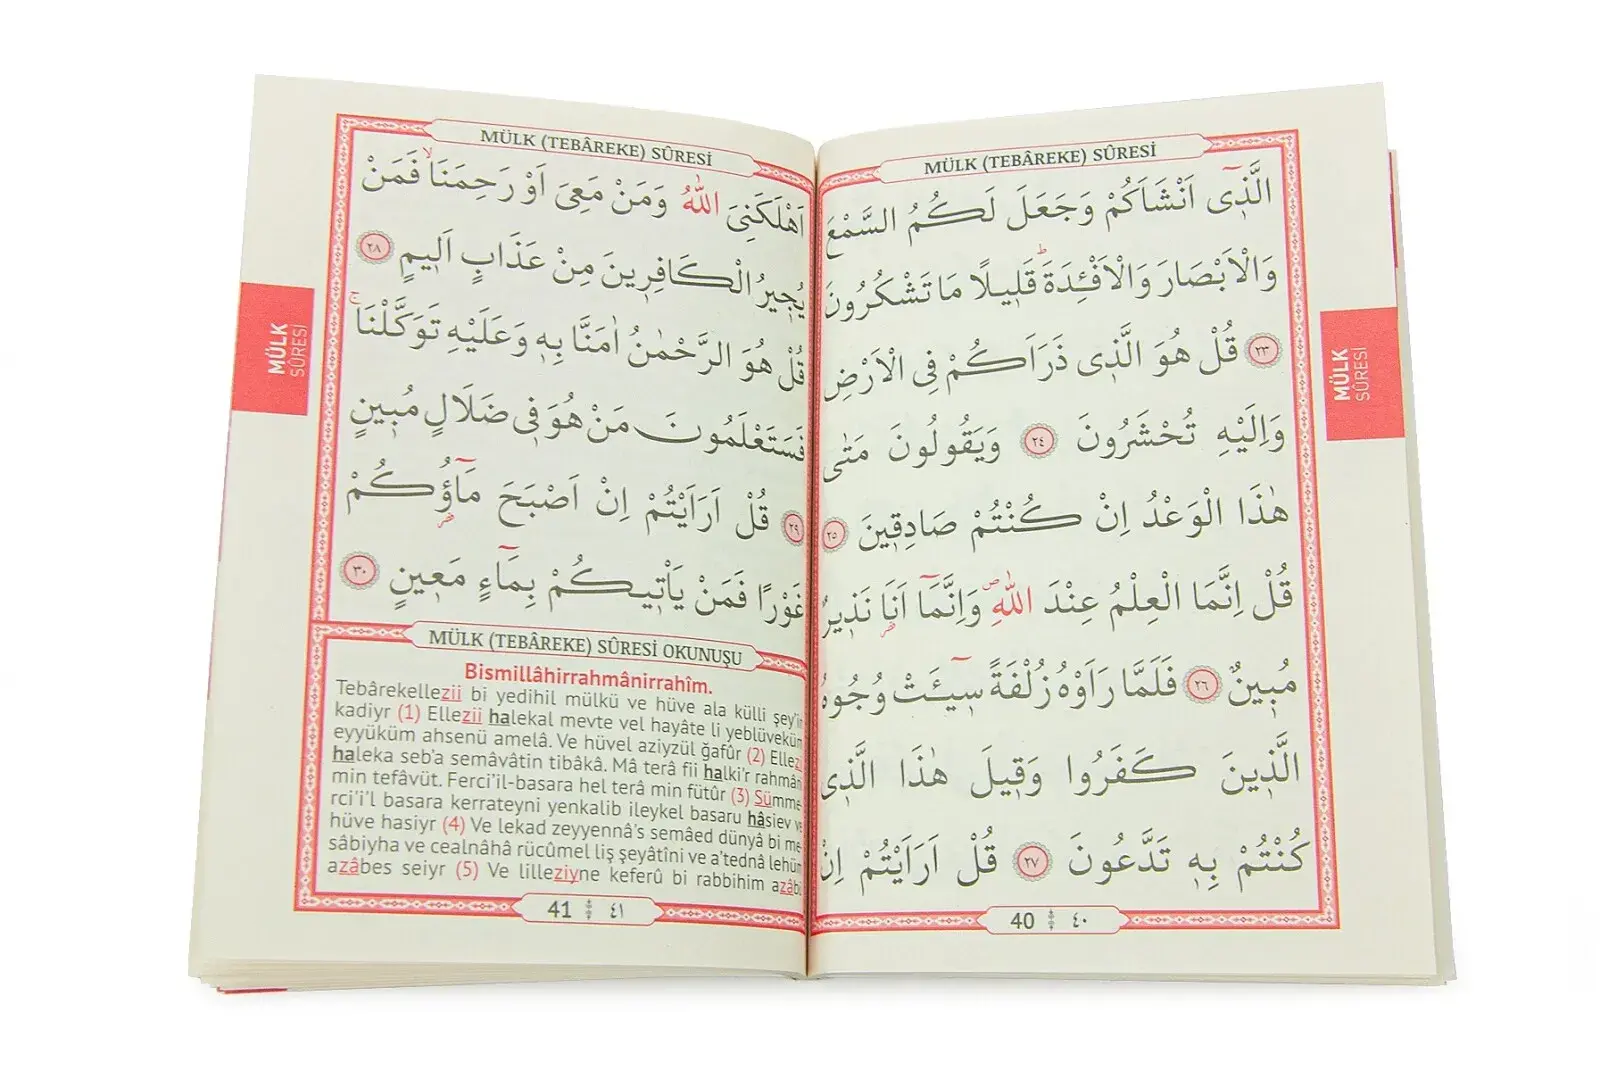 MÜLK (TEBÂREKE) SÛRESİ
الَّذ۪ٓى اَنْشَاَكُمْ وَجَعَلَ لَكُمُ السَّمْعَ
وَالْاَبْصَارَ وَالْاَفْـِٔدَةَۜ قَل۪يلًا مَا تَشْكُرُونَ
٢٣ قُلْ هُوَ الَّذ۪ى ذَرَاَكُمْ فِى الْاَرْضِ
وَاِلَيْهِ تُحْشَرُونَ ٢٤ وَيَقُولُونَ مَتٰى
هٰذَا الْوَعْدُ اِنْ كُنْتُمْ صَادِق۪ينَ ٢٥
قُلْ اِنَّمَا الْعِلْمُ عِنْدَ اللّٰهِۖ وَاِنَّمَٓا اَنَا۬ نَذ۪يرٌ
مُب۪ينٌ ٢٦ فَلَمَّا رَاَوْهُ زُلْفَةً س۪ٓيـَٔتْ وُجُوهُ
الَّذ۪ينَ كَفَرُوا وَق۪يلَ هٰذَا الَّذ۪ى
كُنْتُمْ بِه۪ تَدَّعُونَ ٢٧ قُلْ اَرَاَيْتُمْ اِنْ
40 ٤٠
MÜLK
SÛRESİ
MÜLK (TEBÂREKE) SÛRESİ
اَهْلَكَنِىَ اللّٰهُ وَمَنْ مَعِىَ اَوْ رَحِمَنَاۙ فَمَنْ
يُج۪يرُ الْكَافِر۪ينَ مِنْ عَذَابٍ اَل۪يمٍ ٢٨
قُلْ هُوَ الرَّحْمٰنُ اٰمَنَّا بِه۪ وَعَلَيْهِ تَوَكَّلْنَاۚ
فَسَتَعْلَمُونَ مَنْ هُوَ ف۪ى ضَلَالٍ مُب۪ينٍ
٢٩ قُلْ اَرَاَيْتُمْ اِنْ اَصْبَحَ مَٓاؤُ۬كُمْ
غَوْرًا فَمَنْ يَاْت۪يكُمْ بِمَٓاءٍ مَع۪ينٍ ٣٠
MÜLK (TEBÂREKE) SÛRESİ OKUNUŞU
Bismillâhirrahmânirrahîm.
Tebârekellezii bi yedihil mülkü ve hüve ala külli şey'in
kadiyr (1) Ellezii halekal mevte vel hayâte li yeblüveküm
eyyüküm ahsenü amelâ. Ve hüvel aziyzül ğafûr (2) Ellezi
haleka seb'a semâvâtin tibâkâ. Mâ terâ fii halki'r rahmân
min tefâvüt. Ferci'il-basara hel terâ min fütûr (3) Sümme
rci'i'l basara kerrateyni yenkalib ileykel basaru hâsiev ve
hüve hasiyr (4) Ve lekad zeyyennâ's semâed dünyâ bi me
sâbiyha ve cealnâhâ rücûmel liş şeyâtîni ve a'tednâ lehüm
azâbes seiyr (5) Ve lilleziyne keferû bi rabbihim azâbü
41 ٤١
MÜLK
SÛRESİ